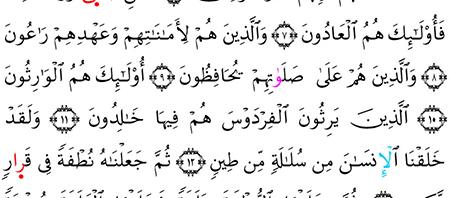 فَأُوْلَـٰٓئِكَ هُمُ ٱلْعَادُونَ ﴿٧﴾ وَٱلَّذِينَ هُمْ لِأَمَـٰنَـٰتِهِمْ وَعَهْدِهِمْ رَٰعُونَ
﴿٨﴾ وَٱلَّذِينَ هُمْ عَلَىٰ صَلَوَٰتِهِمْ يُحَافِظُونَ ﴿٩﴾ أُوْلَـٰٓئِكَ هُمُ ٱلْوَٰرِثُونَ
﴿١٠﴾ ٱلَّذِينَ يَرِثُونَ ٱلْفِرْدَوْسَ هُمْ فِيهَا خَـٰلِدُونَ ﴿١١﴾ وَلَقَدْ
خَلَقْنَا ٱلْإِنسَـٰنَ مِن سُلَـٰلَةٍ مِّن طِينٍ ﴿١٢﴾ ثُمَّ جَعَلْنَـٰهُ نُطْفَةً فِى قَرَارٍ